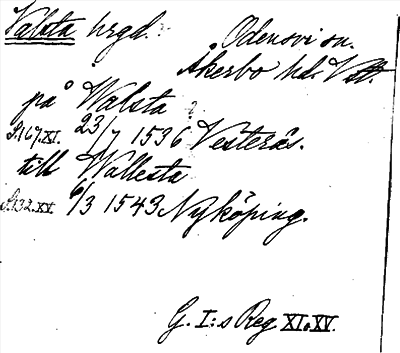 Valsta hrgd. Odensvi sn.
Åkerbo hd. Vstl.
på Walsta ?
S.167.XI. 23/7 1536 Vesterås.
till Wallesta
S.132.XV 6/3 1543 Nyköping.
G. I:s Reg. XI o XV.